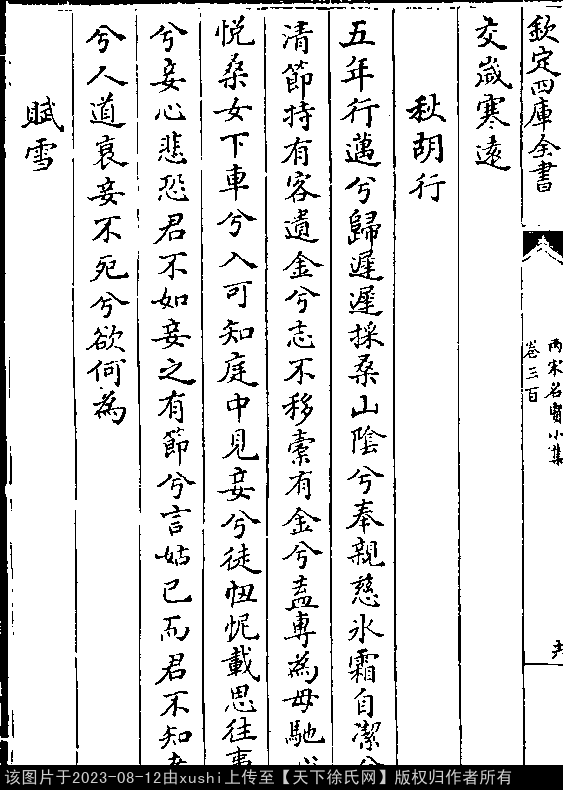 欽定四庫全書
兩宋名賢小集
卷三百
交歲寒遠
秋胡行
五年行邁兮歸遲遲採桑山陰兮奉親慈氷霜自潔兮
清節持有客遺金兮志不移槖有金兮盖專為母馳
悦桑女下車兮入可知庭中見妾兮徒忸怩載思往事
兮妾心悲恐君不如妾之有節兮言姑已而君不知
兮人道衰妾不死兮欲何為
賦雪
该图片于2023-08-12由xushi上传至【天下徐氏网】版权归作者所有